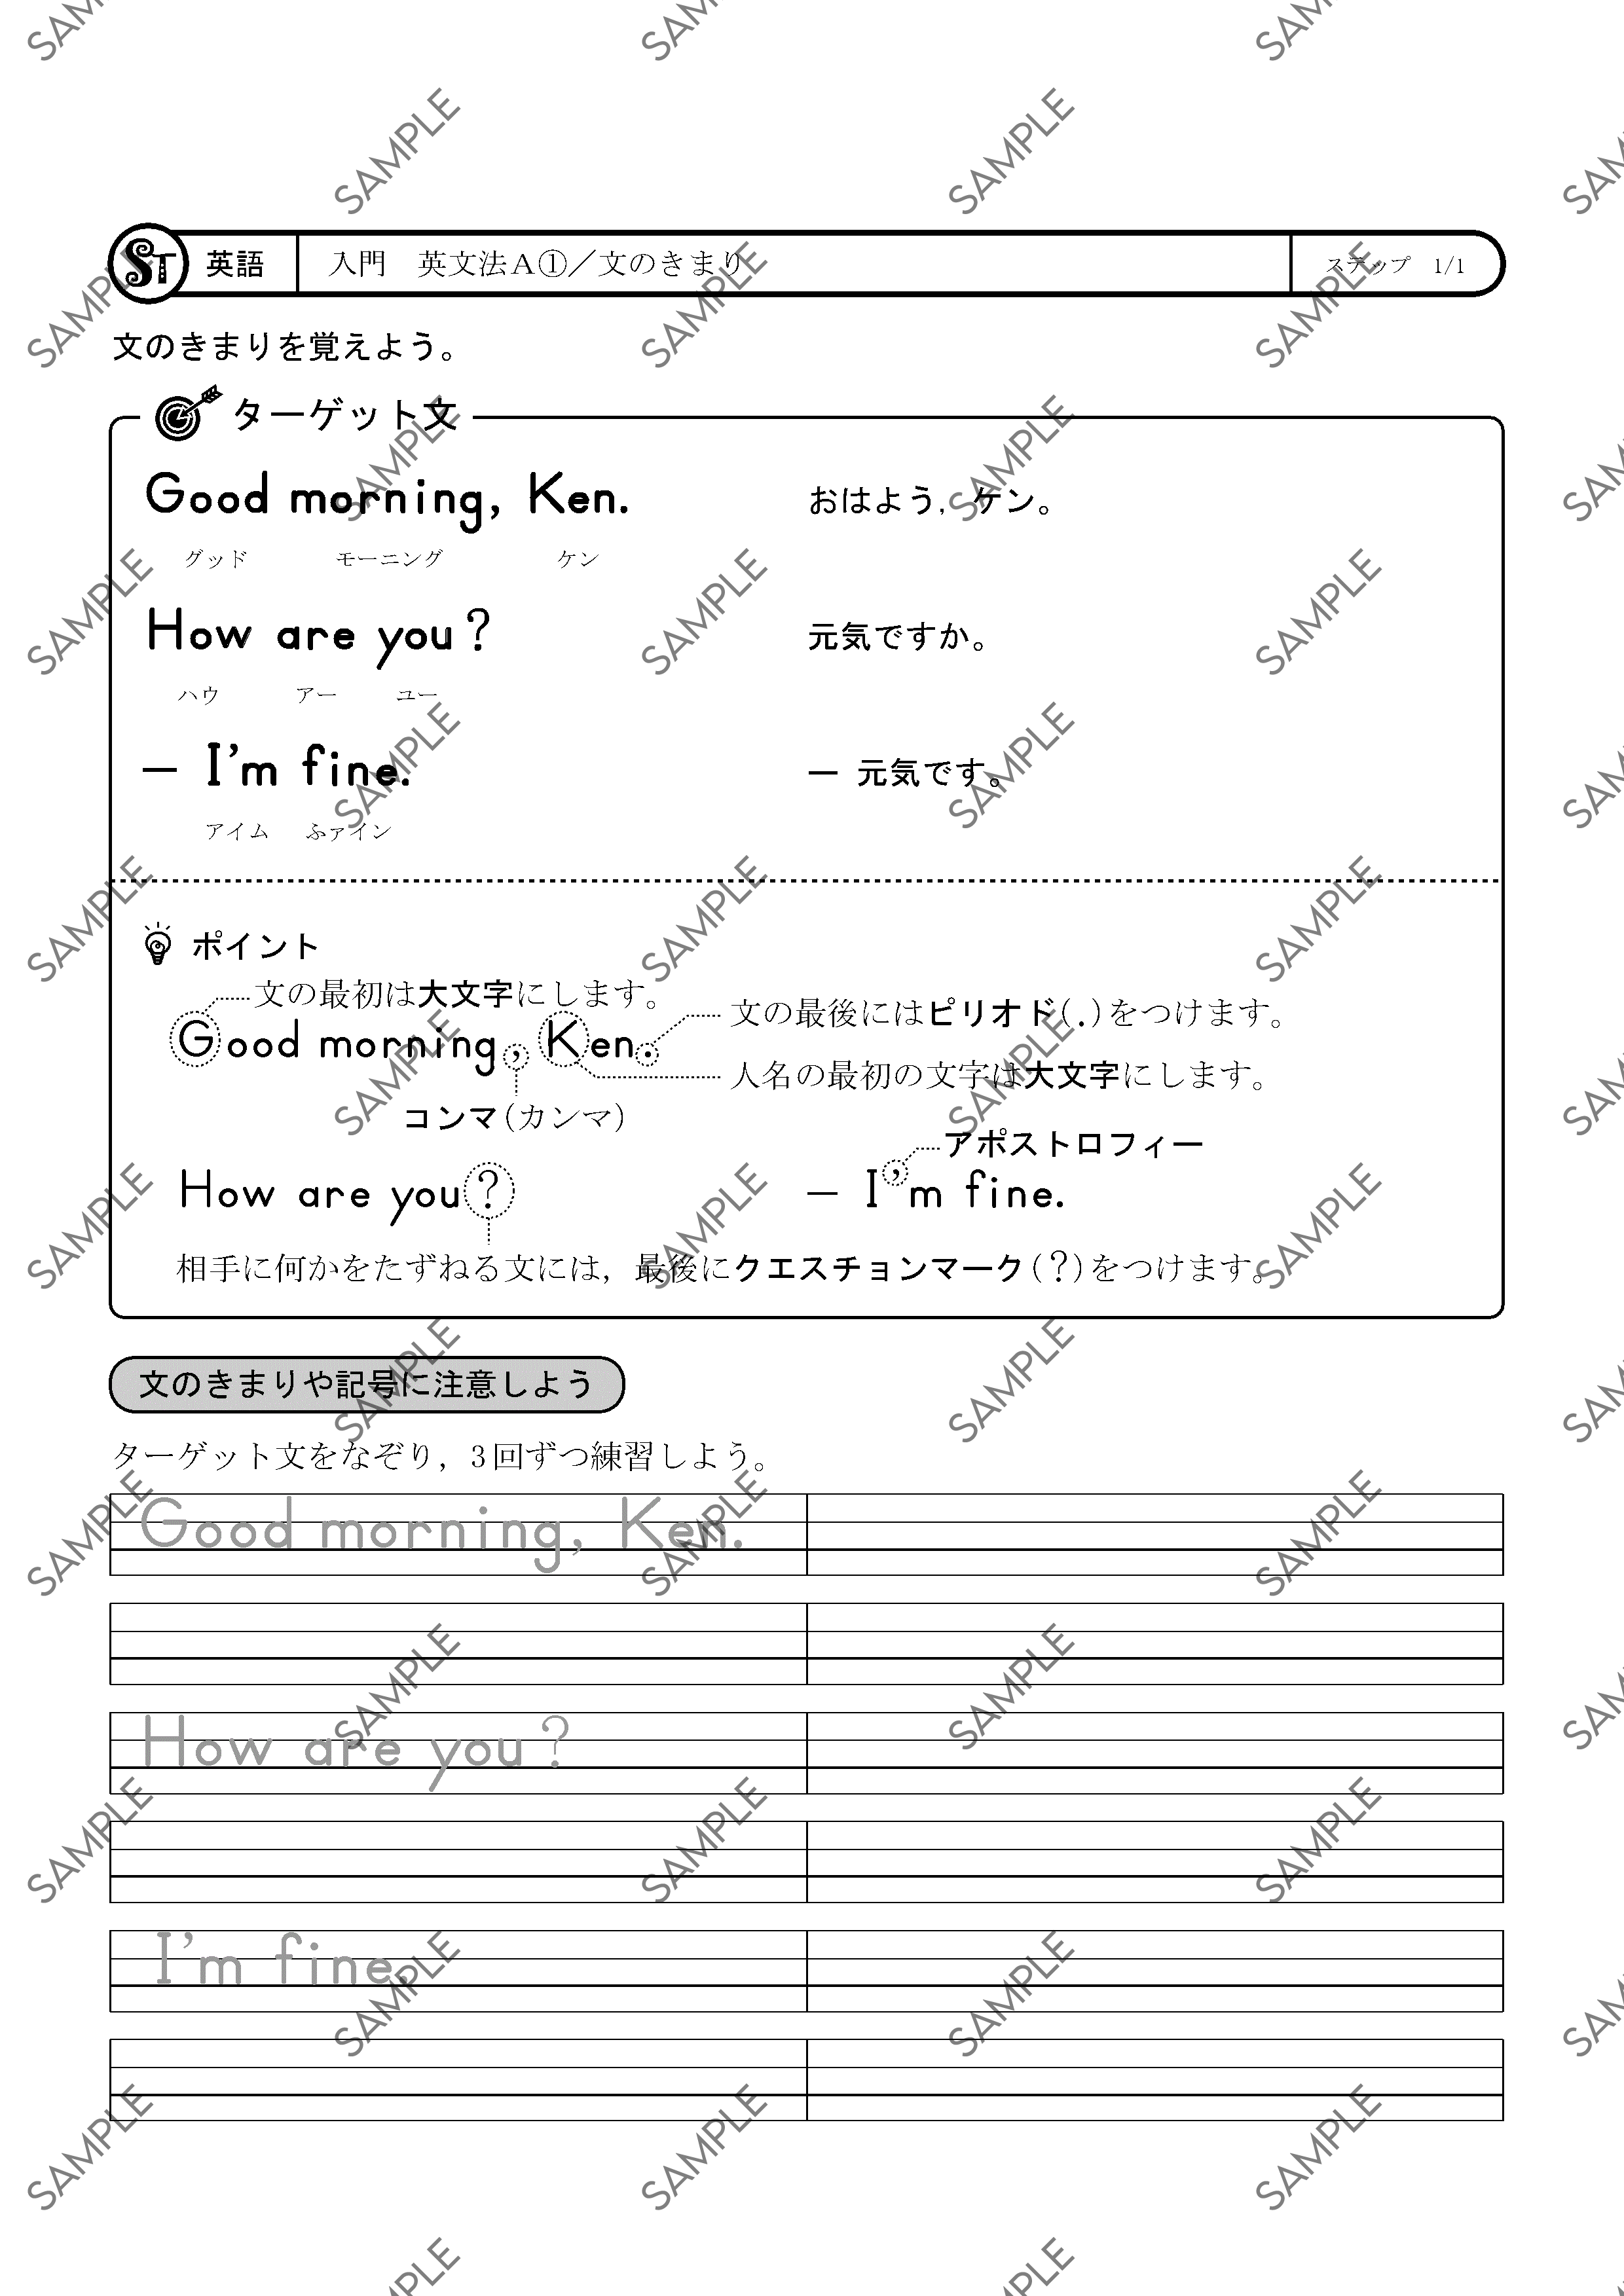 ST 英語 入門 英文法A①／文のきまり ステップ 1/1
文のきまりを覚えよう。
ターゲット文
Good morning, Ken. おはよう，ケン。
グッド モーニング ケン
How are you? 元気ですか。
ハウ アー ユー
— I'm fine. — 元気です。
アイム ふァイン
ポイント
文の最初は大文字にします。
文の最後にはピリオド(.)をつけます。
Good morning, Ken.
人名の最初の文字は大文字にします。
コンマ(カンマ)
アポストロフィー
How are you? — I'm fine.
相手に何かをたずねる文には，最後にクエスチョンマーク(?)をつけます。
文のきまりや記号に注意しよう
ターゲット文をなぞり，3回ずつ練習しよう。
Good morning, Ken.
How are you?
I'm fine.
SAMPLE